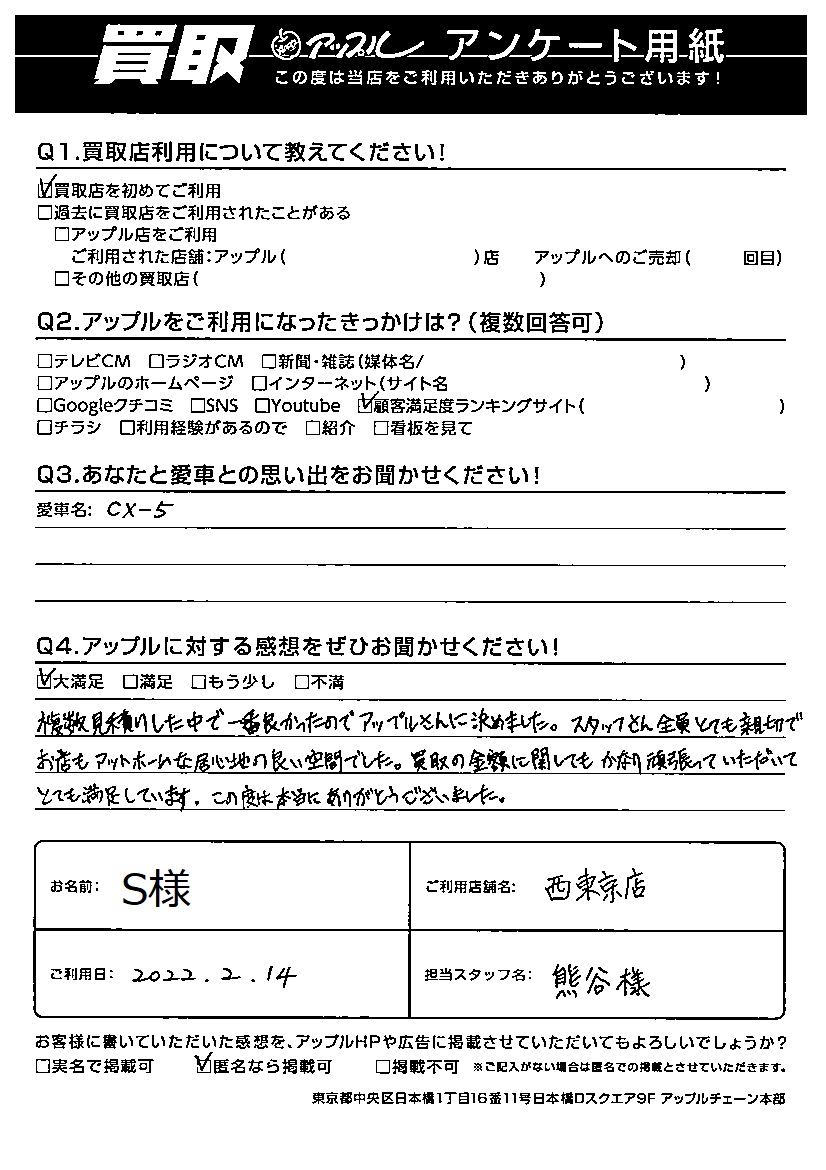 買取 アップル アンケート用紙
この度は当店をご利用いただきありがとうございます!
Q1.買取店利用について教えてください!
☑買取店を初めてご利用
□過去に買取店をご利用されたことがある
□アップル店をご利用
ご利用された店舗:アップル( )店 アップルへのご売却( 回目)
□その他の買取店( )
Q2.アップルをご利用になったきっかけは?(複数回答可)
□テレビCM □ラジオCM □新聞・雑誌(媒体名/ )
□アップルのホームページ □インターネット(サイト名 )
□Googleクチコミ □SNS □Youtube ☑顧客満足度ランキングサイト( )
□チラシ □利用経験があるので □紹介 □看板を見て
Q3.あなたと愛車との思い出をお聞かせください!
愛車名: CX-5
Q4.アップルに対する感想をぜひお聞かせください!
☑大満足 □満足 □もう少し □不満
複数見積りした中で一番良かったのでアップルさんに決めました。スタッフさん全員とても親切で
お店もアットホームな居心地の良い空間でした。買取の金額に関してもかなり頑張っていただいて
とても満足しています。この度は本当にありがとうございました。
お名前: S様 ご利用店舗名: 西東京店
ご利用日: 2022.2.14 担当スタッフ名: 熊谷様
お客様に書いていただいた感想を、アップルHPや広告に掲載させていただいてもよろしいでしょうか?
□実名で掲載可 ☑匿名なら掲載可 □掲載不可 ※ご記入がない場合は匿名での掲載とさせていただきます。
東京都中央区日本橋1丁目16番11号日本橋Dスクエア9F アップルチェーン本部